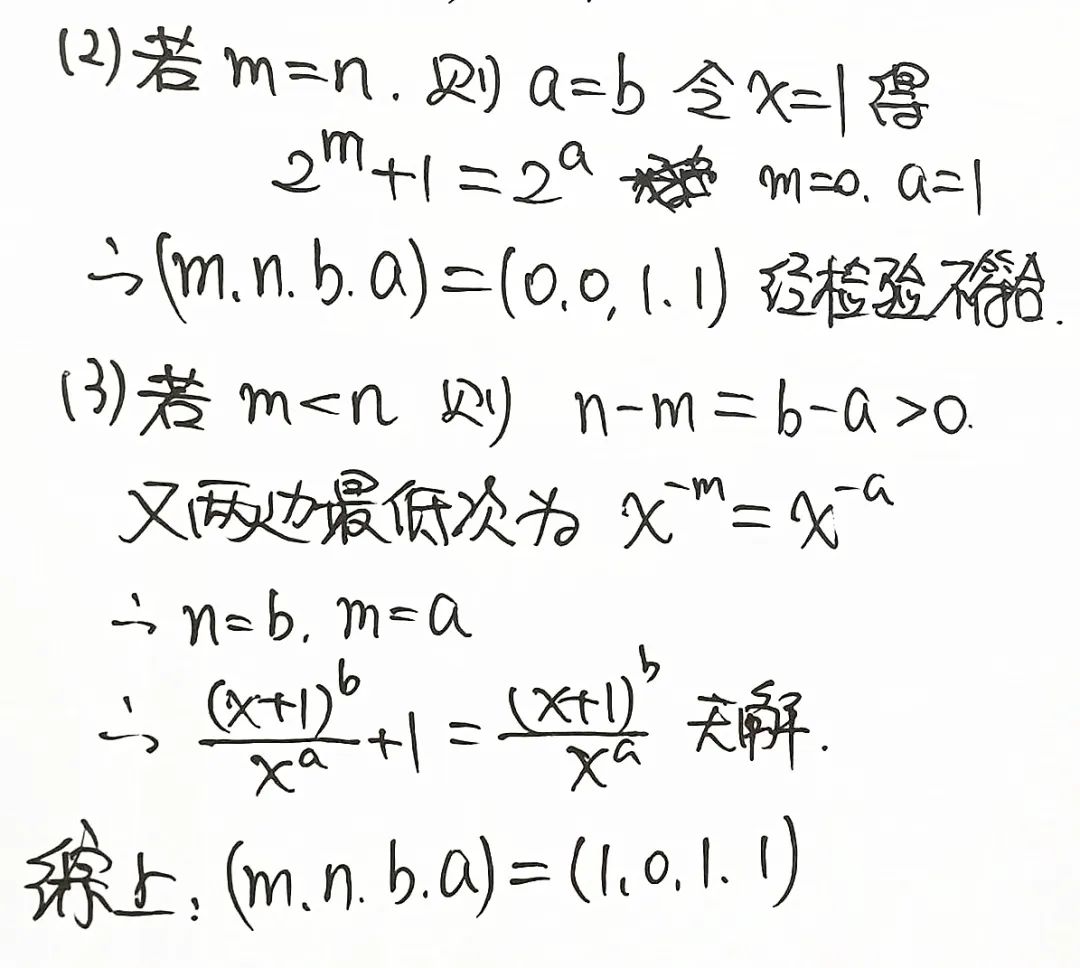 (2)若 m=n. 则 a=b 令x=1得
2^m+1=2^a m=0. a=1
∴(m.n.b.a)=(0.0,1.1) 经检验不符合.
(3)若 m<n 则 n-m=b-a>0.
又两边最低次为 x^{-m}=x^{-a}
∴ n=b. m=a
∴ \frac{(x+1)^b}{x^a}+1=\frac{(x+1)^b}{x^a} 无解.
综上:(m.n.b.a)=(1.0.1.1)